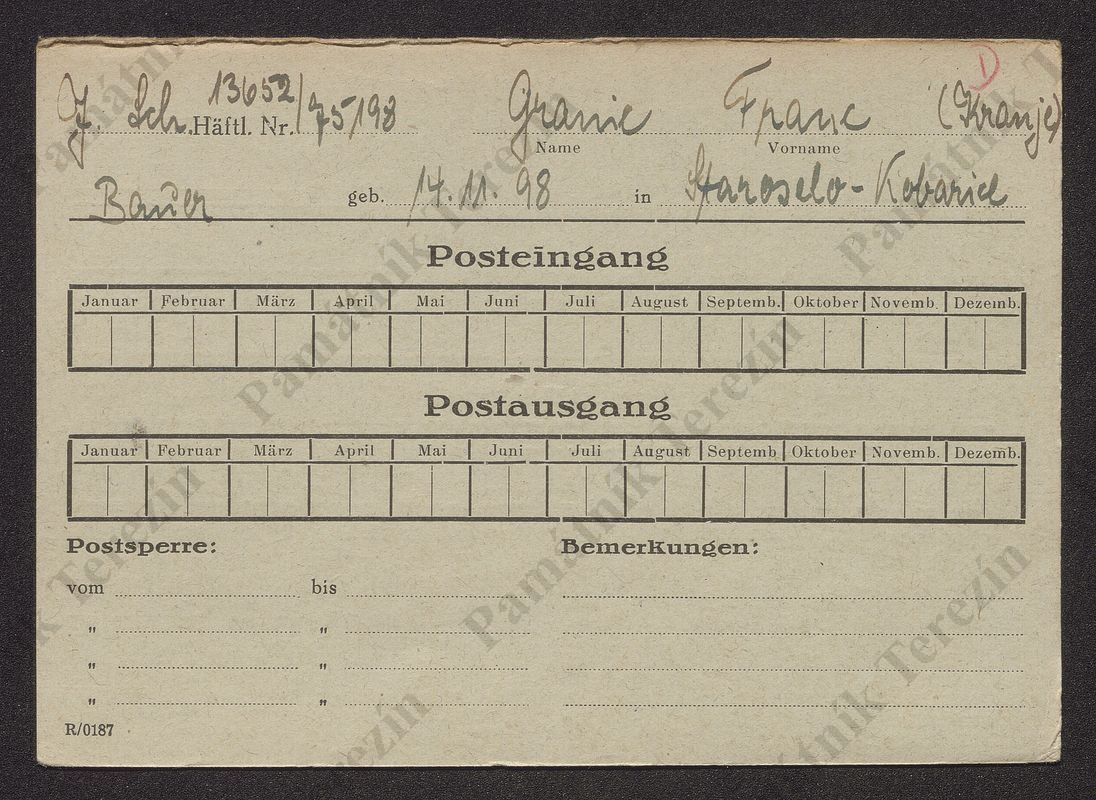 J. Sch. Häftl. Nr. 13652/75/198 Granic Franc (Kranj)
Name Vorname
Bauer geb. 14.11.98 in Staroselo-Kobarid
Posteingang
Januar Februar März April Mai Juni Juli August Septemb. Oktober Novemb. Dezemb.
Postausgang
Januar Februar März April Mai Juni Juli August Septemb Oktober Novemb. Dezemb.
Postsperre: Bemerkungen:
vom bis
" "
" "
" "
R/0187
Památník Terezín